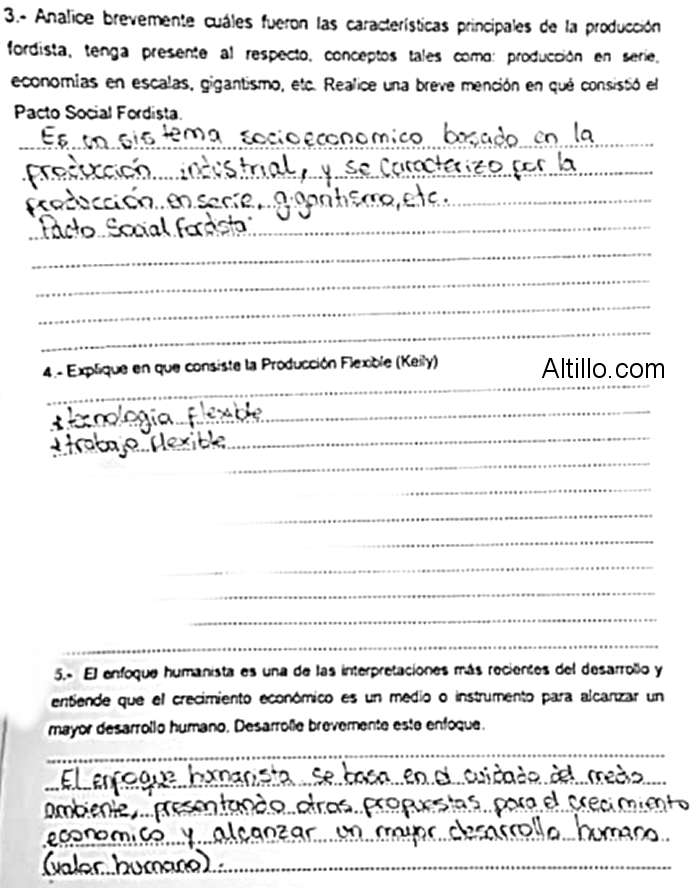 3.- Analice brevemente cuáles fueron las características principales de la producción
fordista, tenga presente al respecto, conceptos tales como: producción en serie,
economías en escalas, gigantismo, etc. Realice una breve mención en qué consistió el
Pacto Social Fordista.
Es un sistema socioeconomico basado en la
producción industrial, y se caracterizo por la
producción en serie, gigantismo, etc.
Pacto Social fordista:
4.- Explique en que consiste la Producción Flexible (Keily)
Altillo.com
* tecnologia flexible
* trabajo flexible
5.- El enfoque humanista es una de las interpretaciones más recientes del desarrollo y
entiende que el crecimiento económico es un medio o instrumento para alcanzar un
mayor desarrollo humano. Desarrolle brevemente este enfoque.
El enfoque humanista se basa en el cuidado del medio
ambiente, presentando otras propuestas para el crecimiento
economico y alcanzar un mayor desarrollo humano
(valor humano).